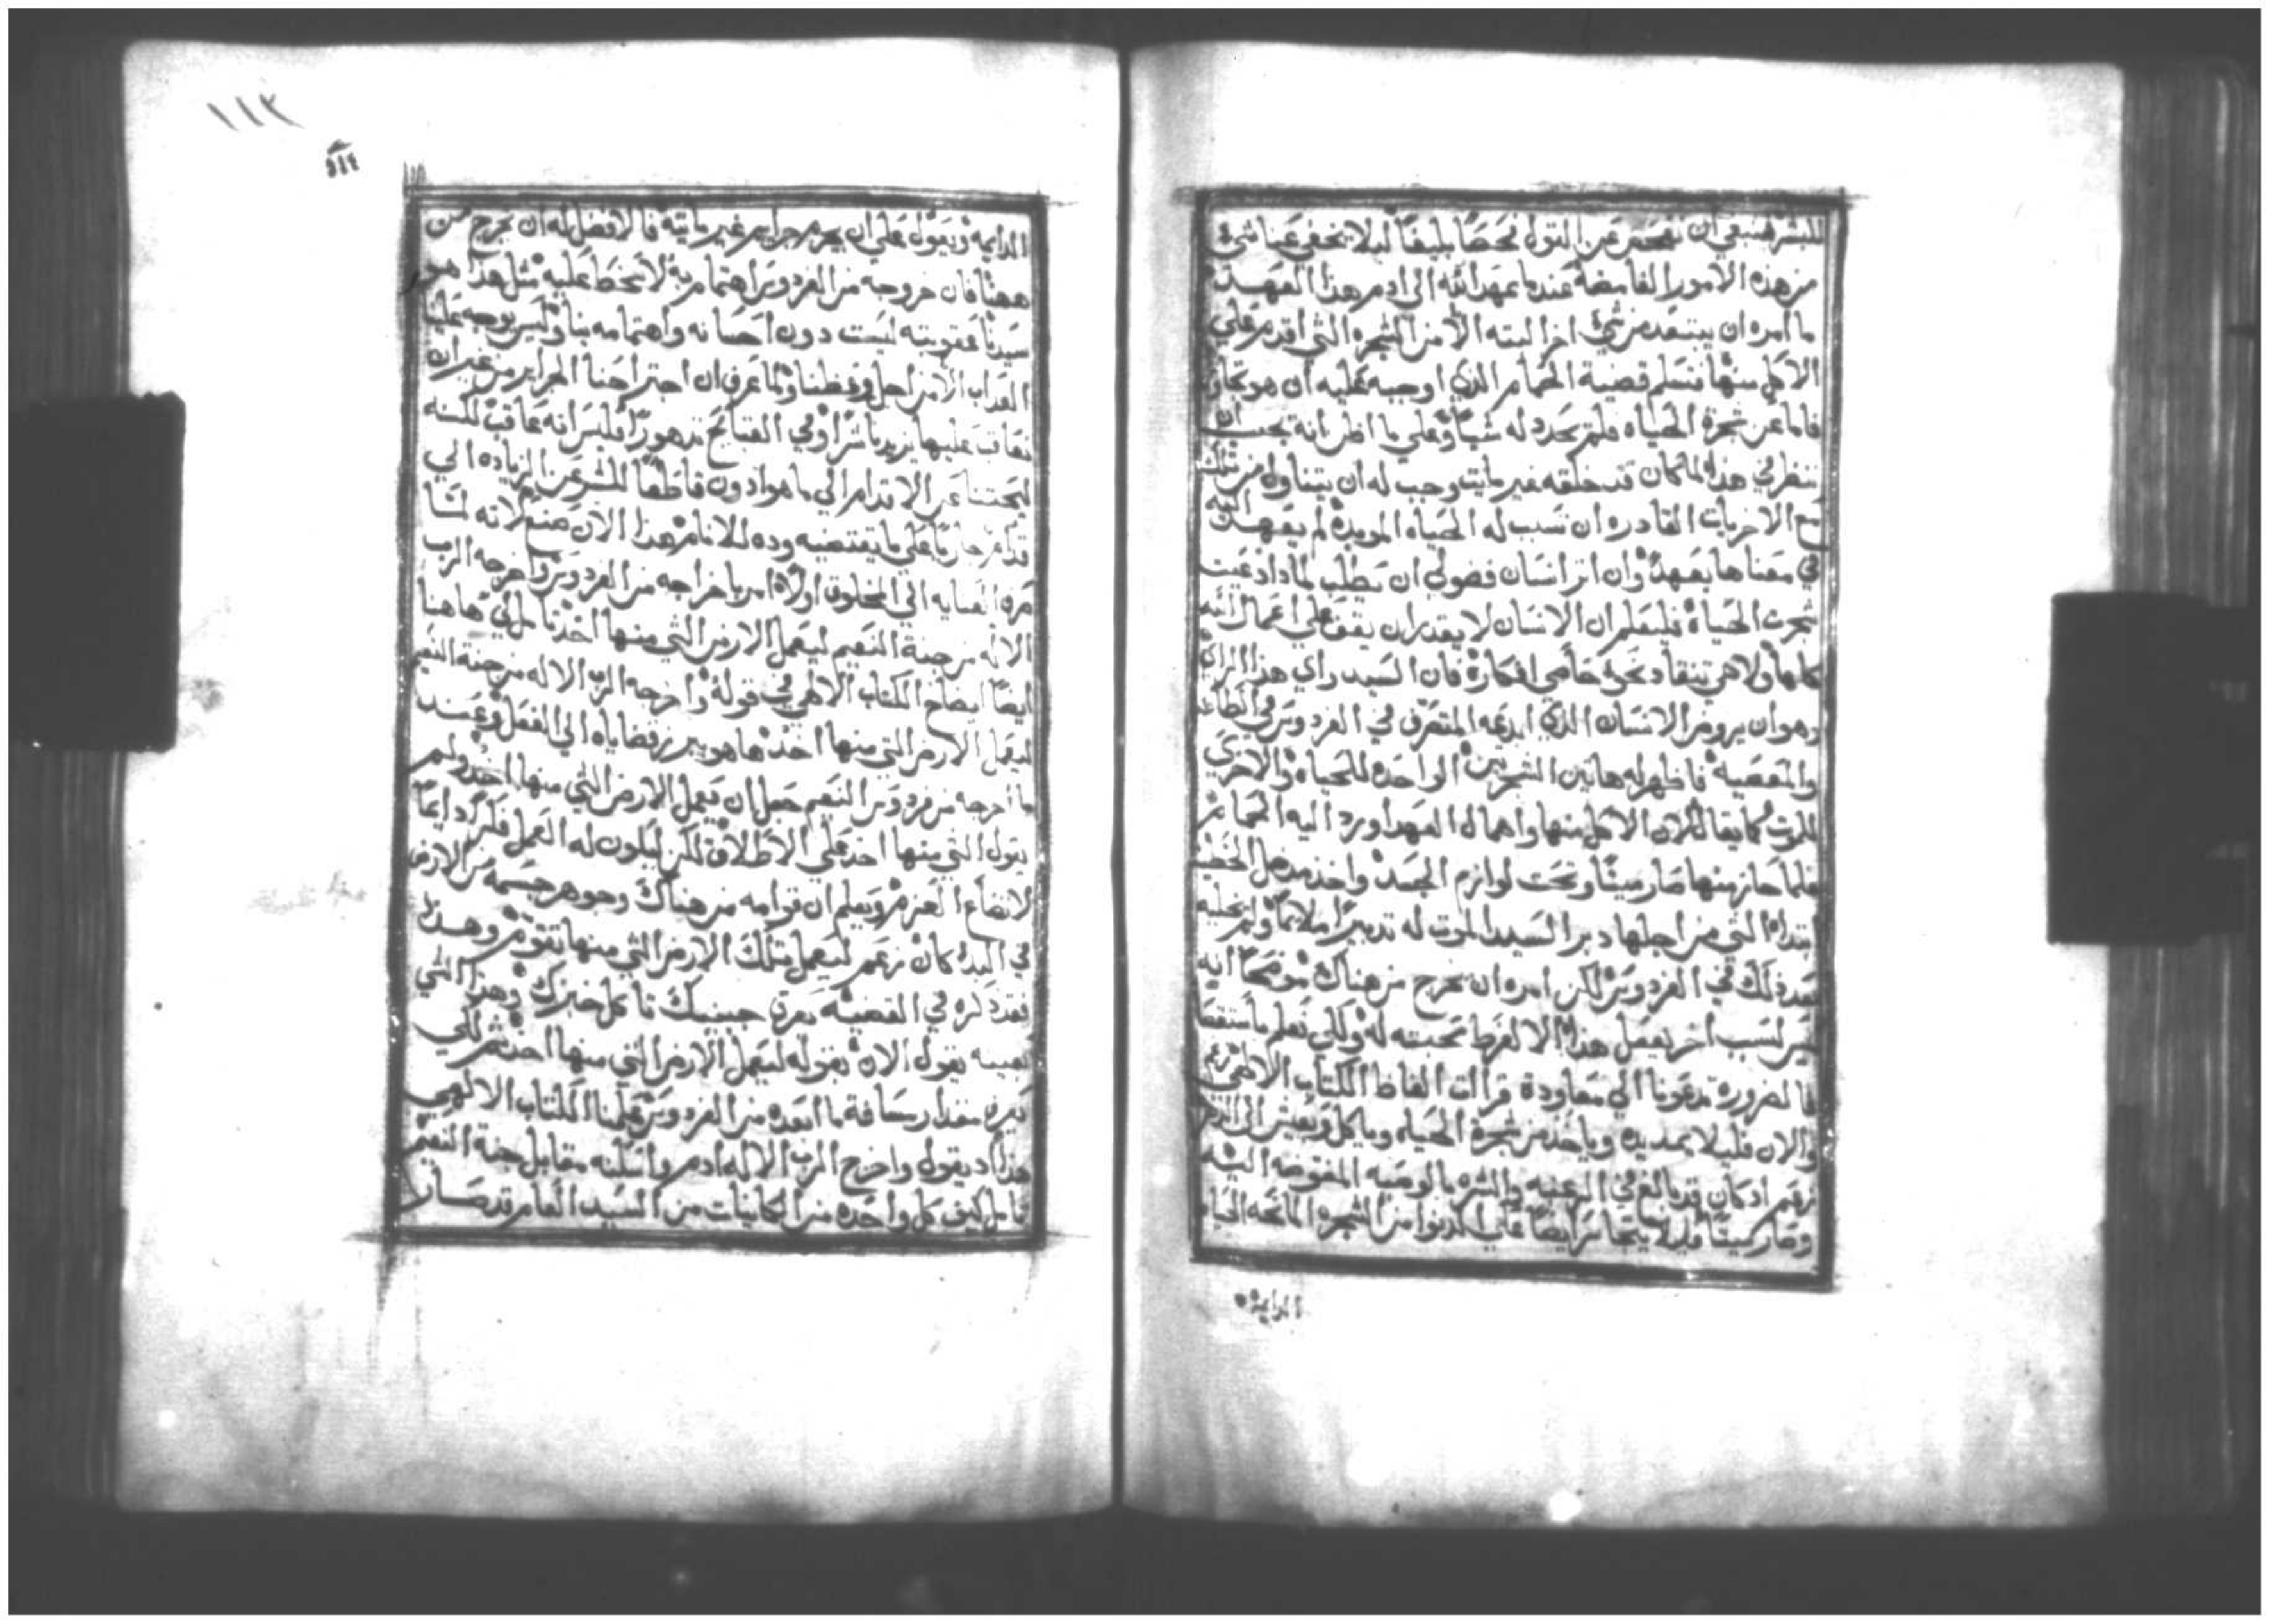 للبشر فينبغي ان نفحص عن القول فحصًا بليغًا ليلا يخفي عنا شي
من هذه الامور الغامضة عند ما عهد الله الي ادم هذا العهد
ما امره ان يبتعد من شي اخر البته الا من الشجره التي اقدم علي
الاكل منها فتسلم قضية الحمام الذي اوجبه عليه ان هو تجاوز
فاما عن شجرة الحياه فلم يحدد له شيًا وعلي ما اظن انه يجب ان
ننظر في هذا لما كان قد خلقه غير مايت وجب له ان يتناول من تلك
مع الاخريات القادره ان تسب له الحياه الموبده لم يعهد اليه
في معناها بعهد وان اثر انسان فضولي ان يطلب لماذا دعيت
شجرت الحياة فليعلم ان الانسان لا يقدر ان يقف علي اعمال الله
كلها ولا هي تنقاد نحو حامي افكاره فان السيد راي هذا الراي
وهو ان يروض الانسان الذي ابدعه المتصرف في الفردوس في الطاعه
والمعصيه فاظهر له هاتين الشجرتين الواحده للحياه والاخري
للموت كما يقال لان الاكل منها واهمال العهد اورد اليه الحمام
فلما حاز منها صار ميتًا وتحت لوازم الجسد واخذ مدخل الخطيه
ابتداه التي من اجلها دبر السيد الموت له تدبيرًا ملايمًا ولم يخليه
بعد ذلك في الفردوس لكن امره ان يخرج من هناك موضحًا انه
ليس لسبب اخر يفعل هذا الا لفرط محبته له ولكي نعلم ما سنقصا
فالضروره تدعونا الي معاودة قراات الفاظ الكتاب الالهي زعم
والان فليلا يمد يده وياخذ من شجرة الحياه وياكل ويعيش الي الدهر
زعم اذ كان قد بالغ في الرغبه والشره بالوصيه المفوضه اليه
وصار ميتًا فليلا يتجاسر ايضًا علي الدنوا من الشجره المانحه الحياه
الدايمه
١١٢
الدايمه ويعول علي ان يجرم جرايم غير مايته فالافضل له ان يخرج من
ههنا فان خروجه من الفردوس اهتمام به لا سخط عليه مثل هذا هو
سيدنا عقوبته ليست دون احسانه واهتمامه بنا وليس يوجه علينا
العذاب الا من اجل وعظنا ولما عرف ان اجتراحنا الجرايم من غير ان
نعاقب عليها يزيدنا شرًا وفي القبايح تدهورًا فليس انه عاقب لكنه
ليحثنا عن الاقدام الي ما هو ادون قاطعًا للشر عن الزياده الي
قدام جاريًا علي ما يقتضيه وده للانام هذا الان صنع لانه لما
مره العنايه الي المخلوق اولًا امر باخراجه من الفردوس واخرجه الرب
الاله من جنة النعيم ليعمل الارض التي منها اخذ تامل لي هاهنا
ايضًا ايضاح الكتاب الالهي في قوله واخرجه الرب الاله من جنة النعيم
ليعمل الارض التي منها اخذ ها هو يبرز قضاياه الي الفعل وعند
ما اخرجه من فردوس النعيم جعل ان يعمل الارض التي منها اخذ ولم
يقول التي منها اخذ علي الاطلاق لكن ليكون له العمل فكرًا دايمًا
لاتضاع العزم ويعلم ان قوامه من هناك وجوهر جسمه من الارض
في البدء كان زعم ليعمل تلك الارض التي منها تقوم وهذا
فقد ذكره في القضيه بعرق جبينك تاكل خبزك وهذا الشي
بعينه يقول الان بقوله ليعمل الارض التي منها اخذ ثم لكي
نعرف مقدار مسافة ما ابعده من الفردوس علمنا الكتاب الالهي
هذا اذ يقول واخرج الرب الاله ادم واسكنه مقابل جنة النعيم
تامل كيف كل واحده من الكاينات من السيد العام قد صار